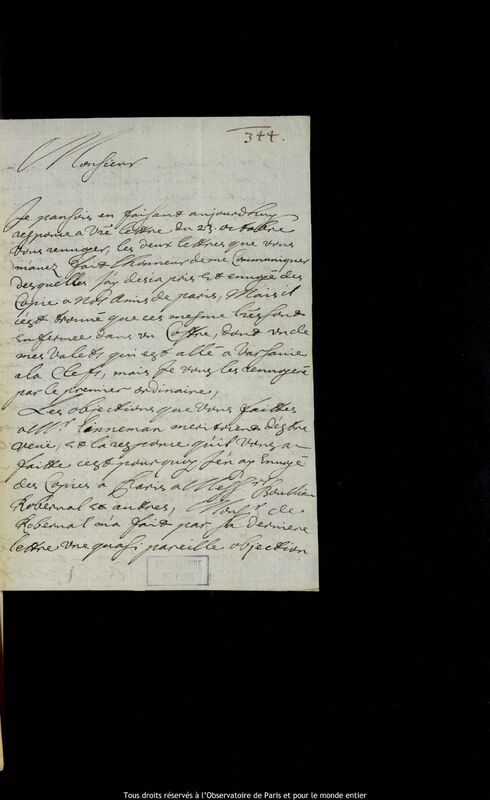 344.
Monsieur
Je pansois en faisant aujourdhuy
responce a Vre lettre du 23 octobre
vous renvoyer, les deux lettres que vous
m'avez fait l'honneur de me Communiquer
desquelles j'ay desia pris et envoyé des
Copie a nos Amis de paris, Mais il
c'est trouvé que ces mesme lres sont
enfermee dans un Coffre, dont un de
mes Valets qui est allé a Varsavie
a la Cleff, mais Je vous les renvoyeré
par le premier ordinaire,
Les objections que vous faittes
a Mr. Linneman meritoient d'estre
veue, et la responce qu'il vous a
faitte cest pourquoy j'en ay Envoyé
des Copies a Paris a Messrs Boulliau
Robernal et autres, Monsr de
Robernal m'a fait par sa derniere
lettre une quasi pareille objection
OBSERVATOIRE
DE PARIS
Tous droits réservés à l'Observatoire de Paris et pour le monde entier